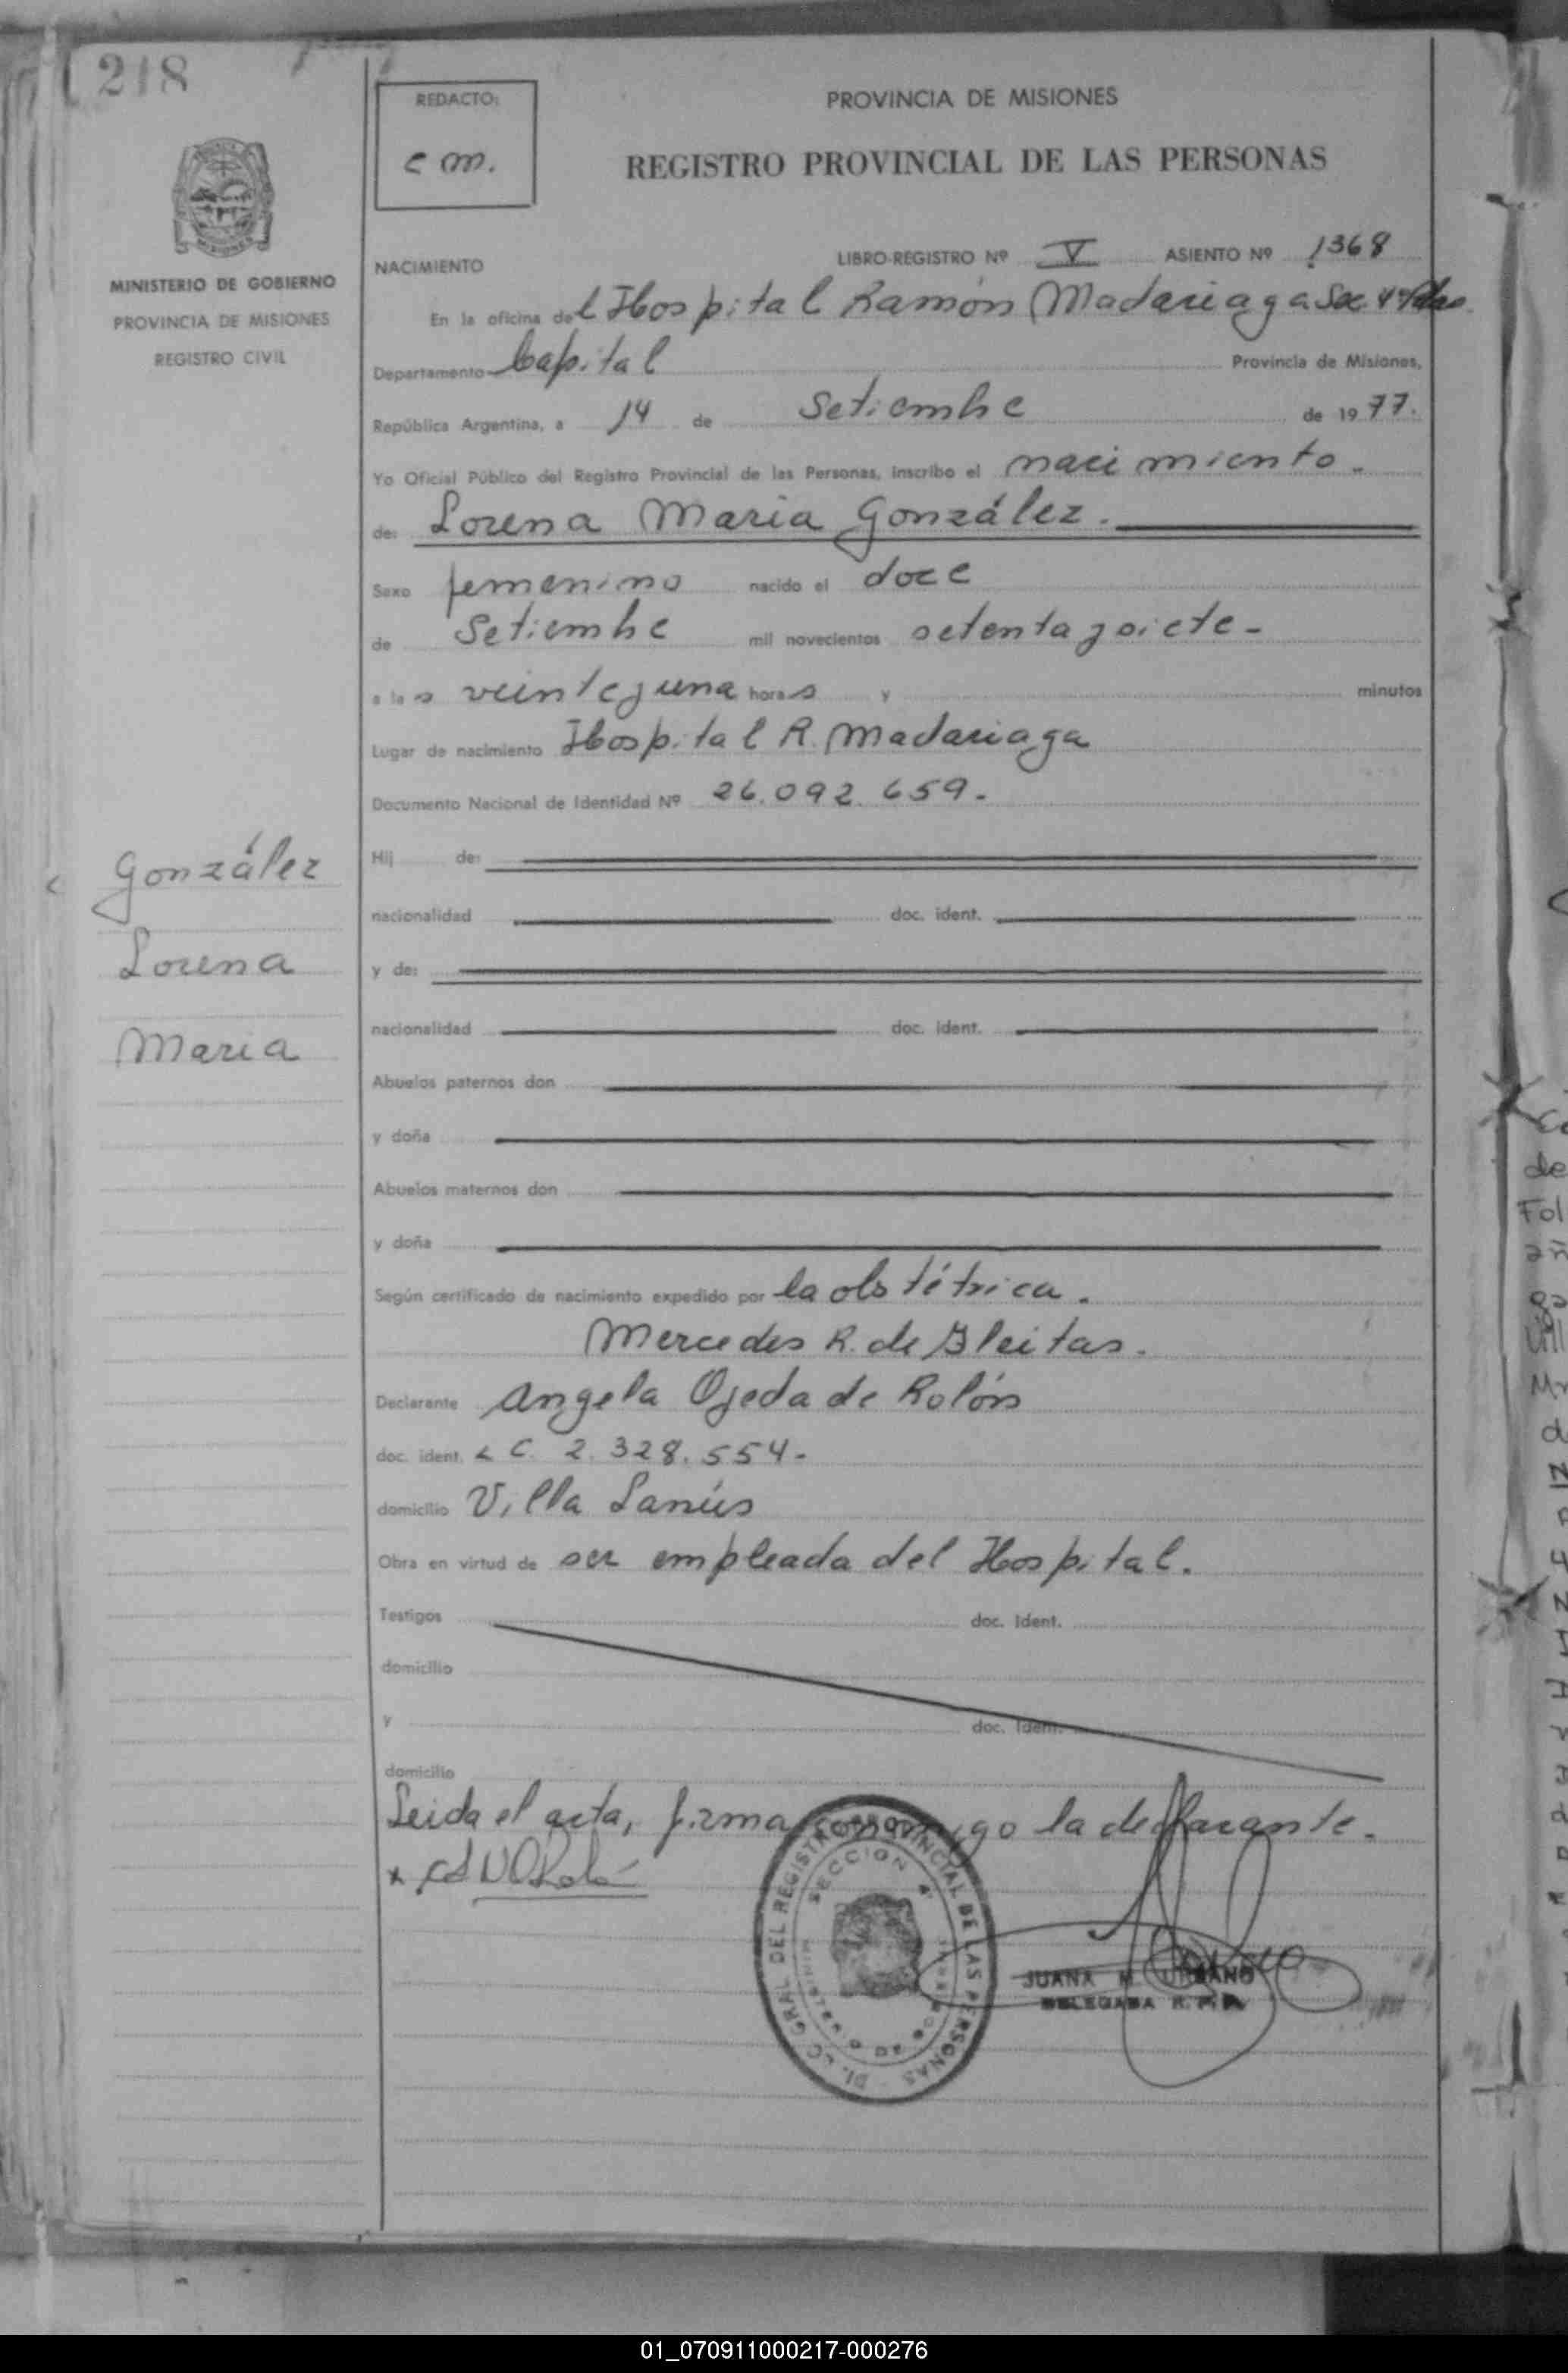 218
REDACTO:
e m.
PROVINCIA DE MISIONES
REGISTRO PROVINCIAL DE LAS PERSONAS
MISIONES
MINISTERIO DE GOBIERNO
PROVINCIA DE MISIONES
REGISTRO CIVIL
NACIMIENTO LIBRO-REGISTRO Nº V ASIENTO Nº 1368
En la oficina del Hospital Ramón Madariaga Sec. 4ª
Departamento Capital Provincia de Misiones,
República Argentina, a 14 de Setiembre de 1977.
Yo Oficial Público del Registro Provincial de las Personas, inscribo el nacimiento.
de: Lorena Maria González.
Sexo femenino nacido el doce
de Setiembre mil novecientos setenta y siete-
a las veinte y una horas y minutos
Lugar de nacimiento Hospital R. Madariaga
Documento Nacional de Identidad Nº 26.092.659.-
González
Lorena
Maria
Hij de:
nacionalidad doc. ident.
y de:
nacionalidad doc. ident.
Abuelos paternos don
y doña
Abuelos maternos don
y doña
Según certificado de nacimiento expedido por la obstétrica.
Mercedes R. de Fleitas.
Declarante Angela Ojeda de Rolón
doc. ident. L C. 2.328.554.-
domicilio Villa Lanús
Obra en virtud de ser empleada del Hospital.
Testigos doc. Ident.
domicilio
y doc. Ident.
domicilio
Leida el acta, firma conmigo la declarante.
DEL REGISTRO PROVINCIAL DE LAS PERSONAS
SECCION 4ª
JUANA M. URBANO
DELEGADA R. P. P.
Fol
01_070911000217-000276